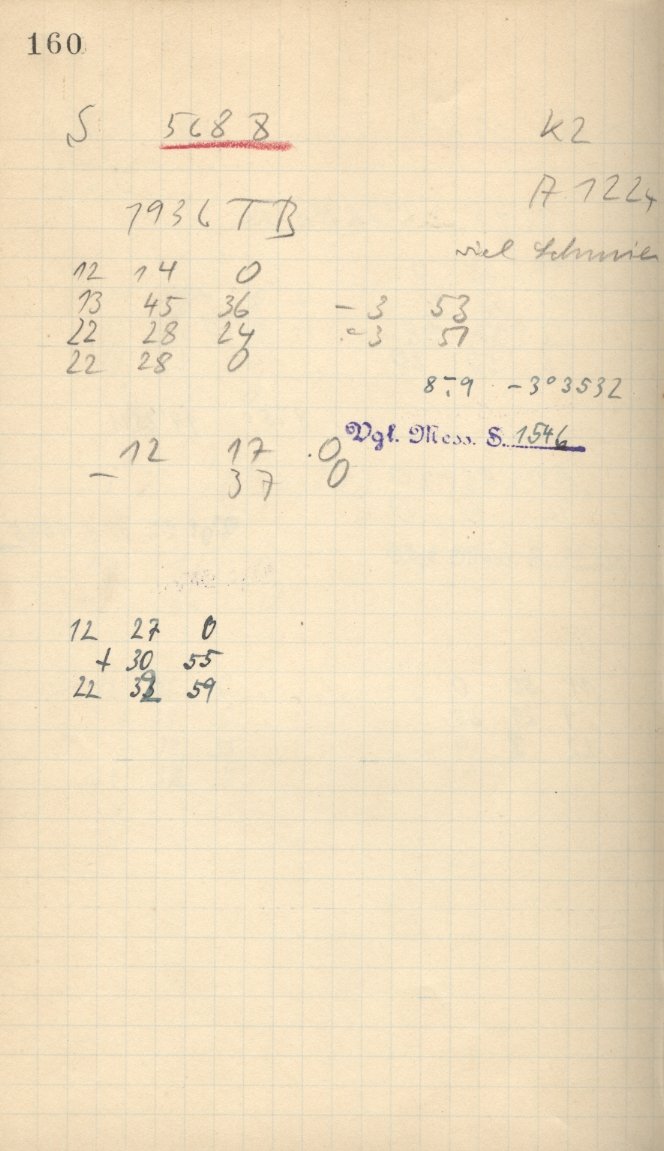 160
S 5688 K2
A 1224
1936 TB
viel
12 14 0
13 45 36 - 3 53
22 28 24 - 3 51
22 28 0
8 9 - 3° 3532
Vgl. Mess. S. 1546
12 17 0
- 37 0
12 27 0
+ 30 55
22 32 59